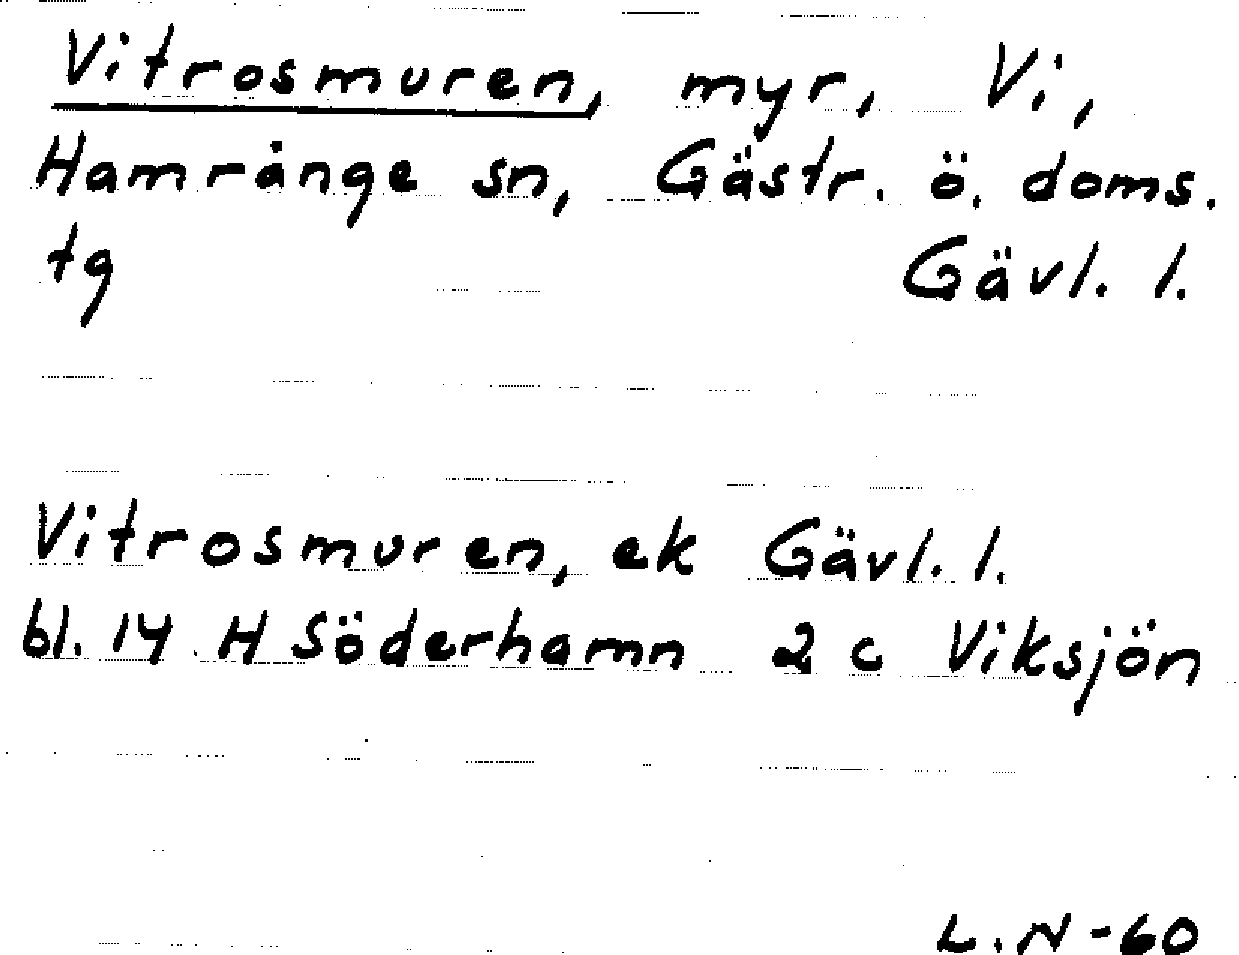 Vitrosmuren, myr, Vi,
Hamrånge sn, Gästr. ö. doms.
tg Gävl. l.
Vitrosmuren, ek Gävl. l.
bl. 14 H Söderhamn 2 c Viksjön
L.N-60